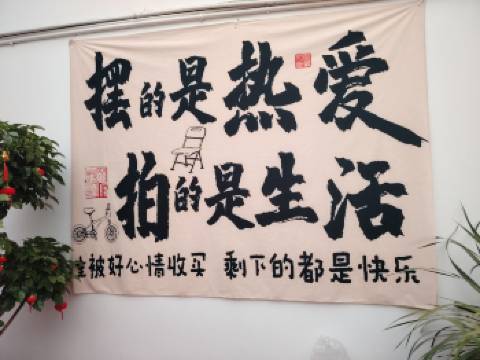 摆的是热爱
拍的是生活
被好心情收买 剩下的都是快乐